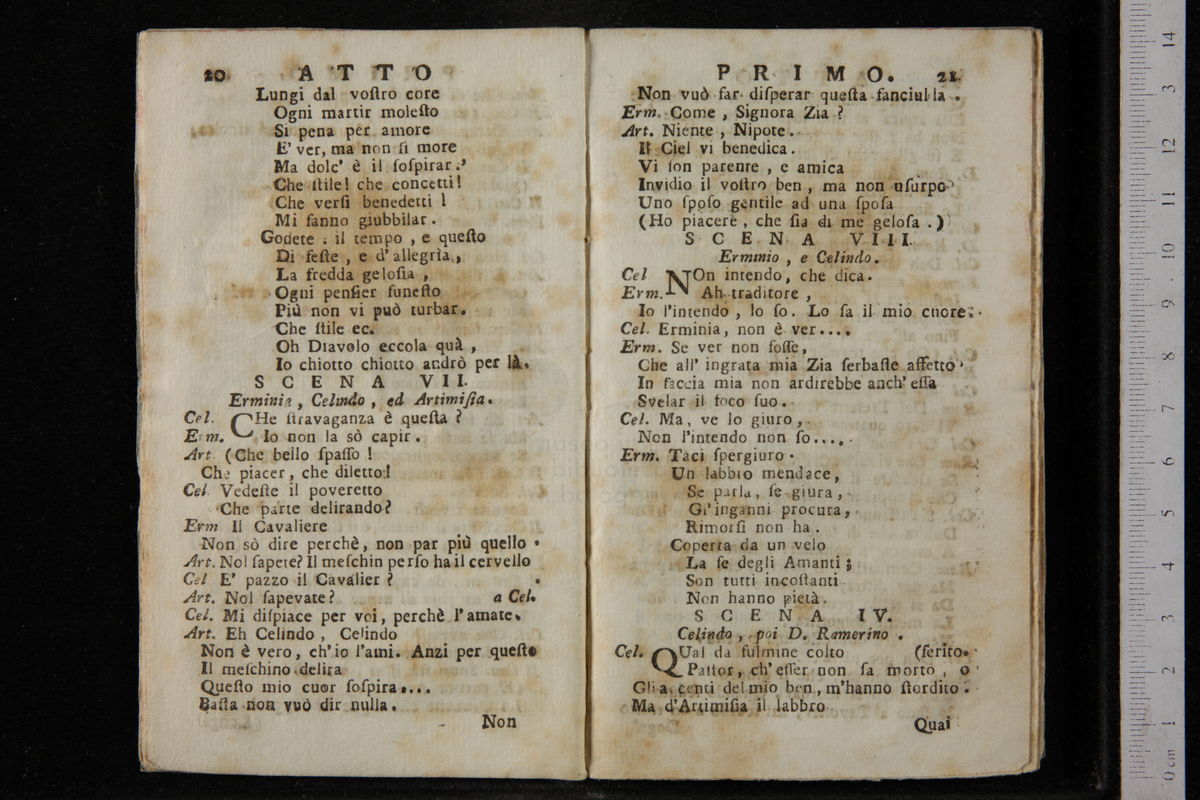 20 ATTO
Lungi dal voſtro core
Ogni martir moleſto
Si pena per amore
E' ver, ma non ſi more
Ma dolc' è il ſoſpirar.'
Che ſtile! che concetti!
Che verſi benedetti !
Mi fanno giubbilar.
Godete : il tempo , e queſto
Di feſte , e d' allegrìa ,
La fredda geloſia ,
Ogni penſier funeſto
Più non vi può turbar.
Che ſtile ec.
Oh Diavolo eccola quà ,
Io chiotto chiotto andrò per là.
SCENA VII.
Erminia , Celindo , ed Artimiſia.
Cel. CHe ſtravaganza è queſta ?
Erm. Io non la sò capir.
Art (Che bello ſpaſſo !
Che piacer, che diletto!
Cel. Vedeſte il poveretto
Che parte delirando?
Erm Il Cavaliere
Non sò dire perchè, non par più quello .
Art. Nol ſapete? Il meſchin perſo ha il cervello
Cel E' pazzo il Cavalier ?
Art. Nol ſapevate? a Cel.
Cel. Mi diſpiace per voi, perchè l'amate.
Art. Eh Celindo , Celindo
Non è vero, ch'io l'ami. Anzi per queſto
Il meſchino delira
Queſto mio cuor ſoſpira....
Baſta non vuò dir nulla.
Non
PRIMO. 21
Non vuò far diſperar queſta fanciulla .
Erm. Come , Signora Zia ?
Art. Niente , Nipote.
Il Ciel vi benedica.
Vi ſon parente , e amica
Invidio il voſtro ben , ma non uſurpo
Uno ſpoſo gentile ad una ſpoſa
(Ho piacere , che ſia di me geloſa .)
SCENA VIII.
Erminio , e Celindo.
Cel NOn intendo, che dica.
Erm. Ah traditore ,
Io l'intendo , lo ſo. Lo ſa il mio cuore.
Cel. Erminia, non è ver....
Erm. Se ver non foſſe,
Che all' ingrata mia Zia ſerbaſte affetto
In faccia mia non ardirebbe anch' eſſa
Svelar il foco ſuo.
Cel. Ma, ve lo giuro,
Non l'intendo non ſo....
Erm. Taci ſpergiuro.
Un labbro mendace,
Se parla, ſe giura ,
Gl'inganni procura,
Rimorſi non ha .
Coperta da un velo
La fe degli Amanti ;
Son tutti incoſtanti
Non hanno pietà.
SCENA IV.
Celindo , poi D. Ramerino .
Cel. QUal da fulmine colto (ferito.
Paſtor, ch' eſſer non ſa morto , o
Gli accenti del mio ben , m'hanno ſtordito .
Ma d'Artimiſia il labbro
Quai